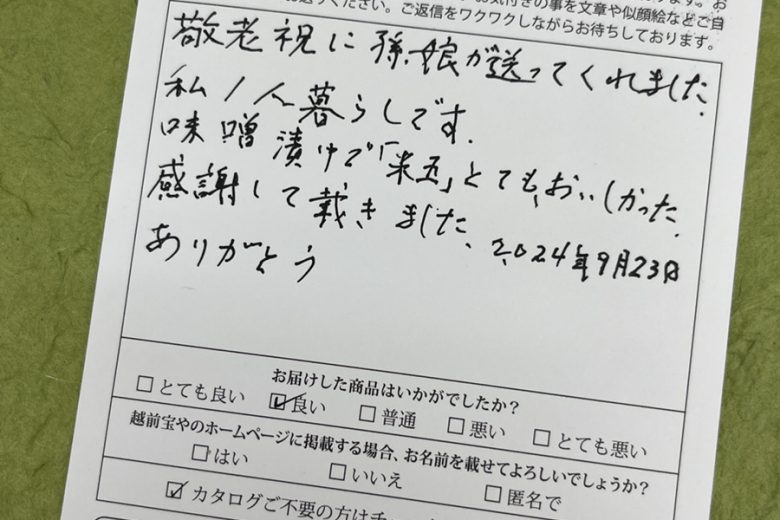 お気付きの事を文章や似顔絵などご自
ください。ご返信をワクワクしながらお待ちしております。
敬老祝に孫、娘が送ってくれました。
私1人暮らしです。
味噌漬けで「米五」とても、おいしかった。
感謝して戴きました。
ありがとう
2024年9月23日
お届けした商品はいかがでしたか？
□とても良い ☑良い □普通 □悪い □とても悪い
越前宝やのホームページに掲載する場合、お名前を載せてよろしいでしょうか？
□はい □いいえ □匿名で
☑カタログご不要の方はチ